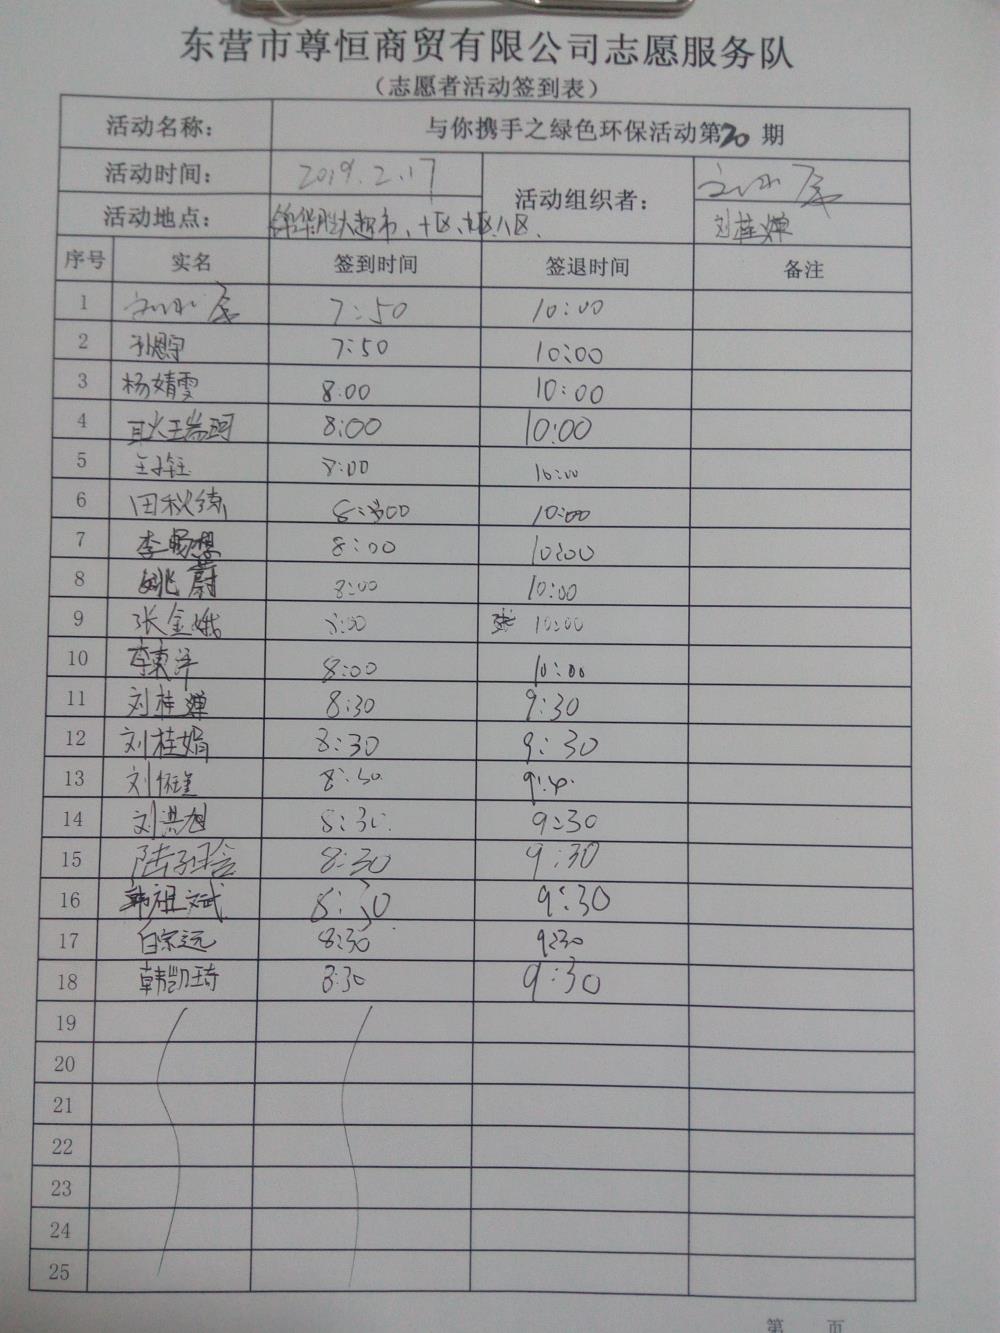 东营市尊恒商贸有限公司志愿服务队
（志愿者活动签到表）
活动名称： 与你携手之绿色环保活动第20期
活动时间： 2019.2.17 活动组织者：
活动地点： 锦华胜大超市、十区、九区、八区、 刘桂婵
序号 实名 签到时间 签退时间 备注
1 7:50 10:00
2 7:50 10:00
3 杨婧雯 8:00 10:00
4 耿王瑞珂 8:00 10:00
5 8:00 10:00
6 田秋绩 8:00 10:00
7 李畅想 8:00 10:00
8 姚蔚 8:00 10:00
9 张金娥 8:00 10:00
10 李东洋 8:00 10:00
11 刘桂婵 8:30 9:30
12 刘桂娟 8:30 9:30
13 8:30
14 刘洪旭 8:30 9:30
15 8:30 9:30
16 韩祖斌 8:30 9:30
17 白宗远 8:30 9:30
18 韩凯琦 8:30 9:30
19
20
21
22
23
24
25
第 页